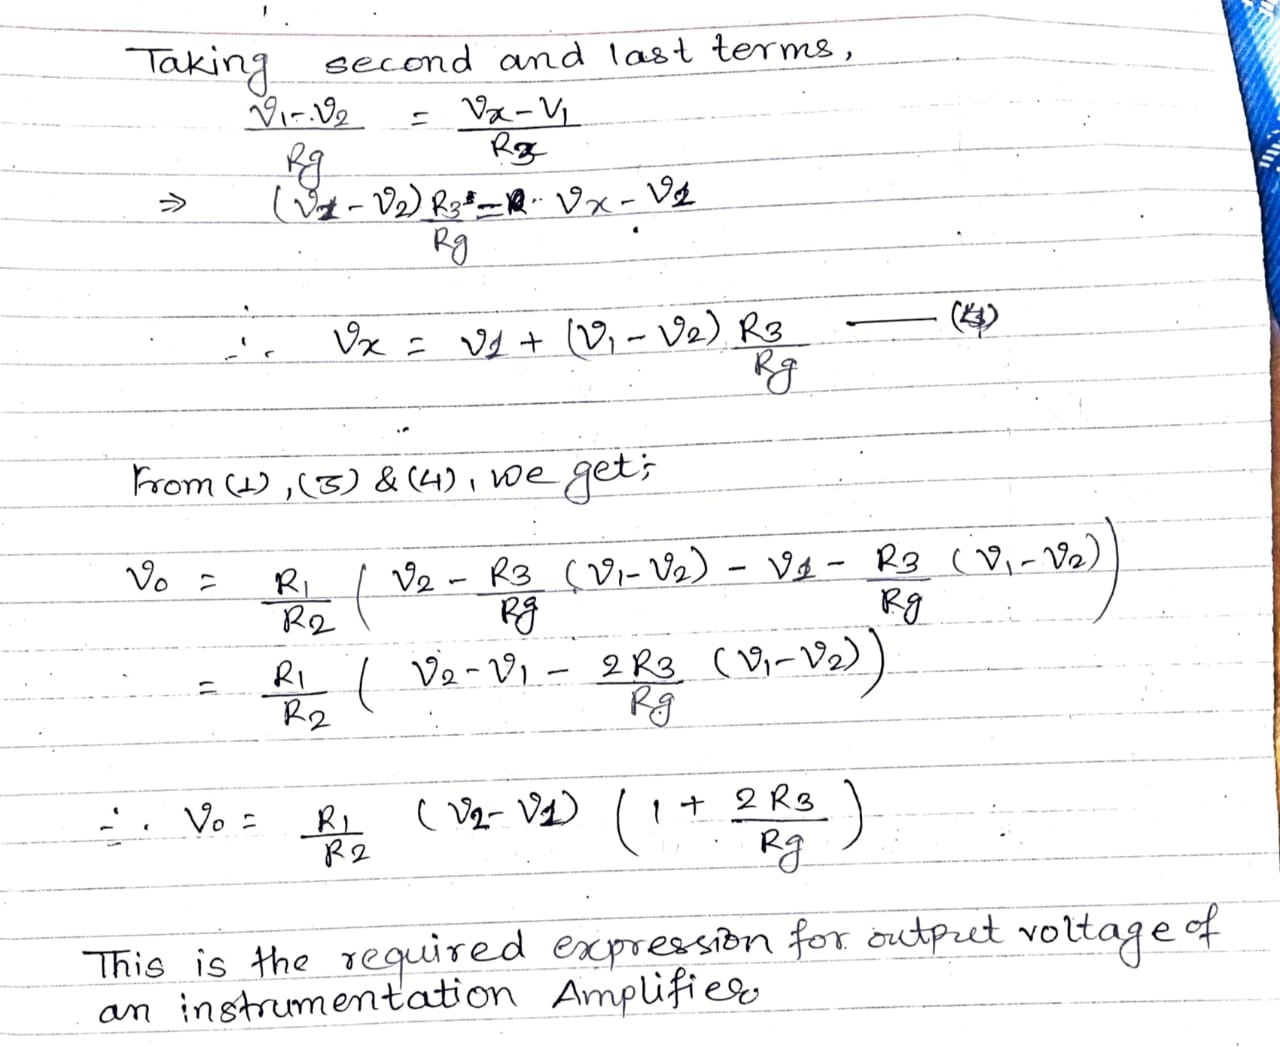 Taking second and last terms,
(V1 - V2)/Rg = (Vx - V1)/R3
⇒ (V1 - V2) R3/Rg = Vx - V1
∴ Vx = V1 + (V1 - V2) R3/Rg —— (4)
From (1), (3) & (4), we get;
Vo = R1/R2 ( V2 - R3/Rg (V1 - V2) - V1 - R3/Rg (V1 - V2) )
= R1/R2 ( V2 - V1 - 2R3/Rg (V1 - V2) )
∴ Vo = R1/R2 (V2 - V1) ( 1 + 2R3/Rg )
This is the required expression for output voltage of
an instrumentation Amplifier